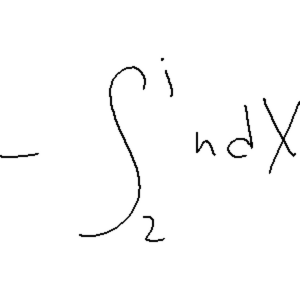 - ∫₂ⁱ n d X